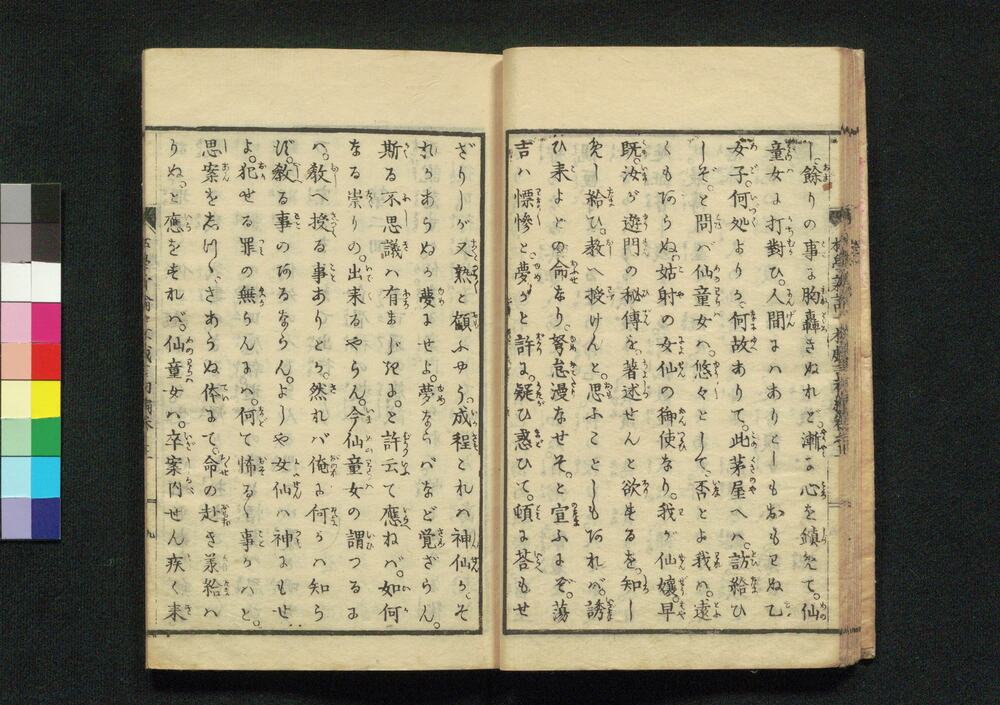 し。餘りの事に胸轟きぬれど。漸に心を鎮めて。仙
童女に打對ひ。人間にはありとしもおもはぬ乙
女子。何処よりか。何故ありて。此茅屋へは。訪給ひ
しぞ。と問ば仙童女は。悠々として。否とよ我は。遠
くもあらぬ。姑射の女仙の御使なり。我が仙孃。早
既。汝が遊門の秘傳を。著述せんと欲するを。知し
めし給ひ。教へ授けんと。思ふことしもあれば。誘
ひ来よとの命なり。努怠漫なせそ。と宣ふにぞ。蕩
吉は慓惨と。夢かと許に。疑ひ惑ひて。頓に荅もせ
ざりしが。又熟と顧ふやう。成程これは神仙か。そ
れかあらぬか夢にせよ。夢ならばなど覚ざらん。
斯る不思議は有まじきに。と許云て應ねば。如何
なる崇りの。出来るやらん。今仙童女の謂つるに
は。教へ授る事ありとか。然れば俺に何かは知ら
ず。教る事のあるならん。よしや女仙は神にもせ
よ。犯せる罪の無らんには。何て怖るゝ事かはと。
思案をしつゝ。さあらぬ体にて。命の赴き承給は
りぬ。と應をすれば。仙童女は。卒案内せん疾く来